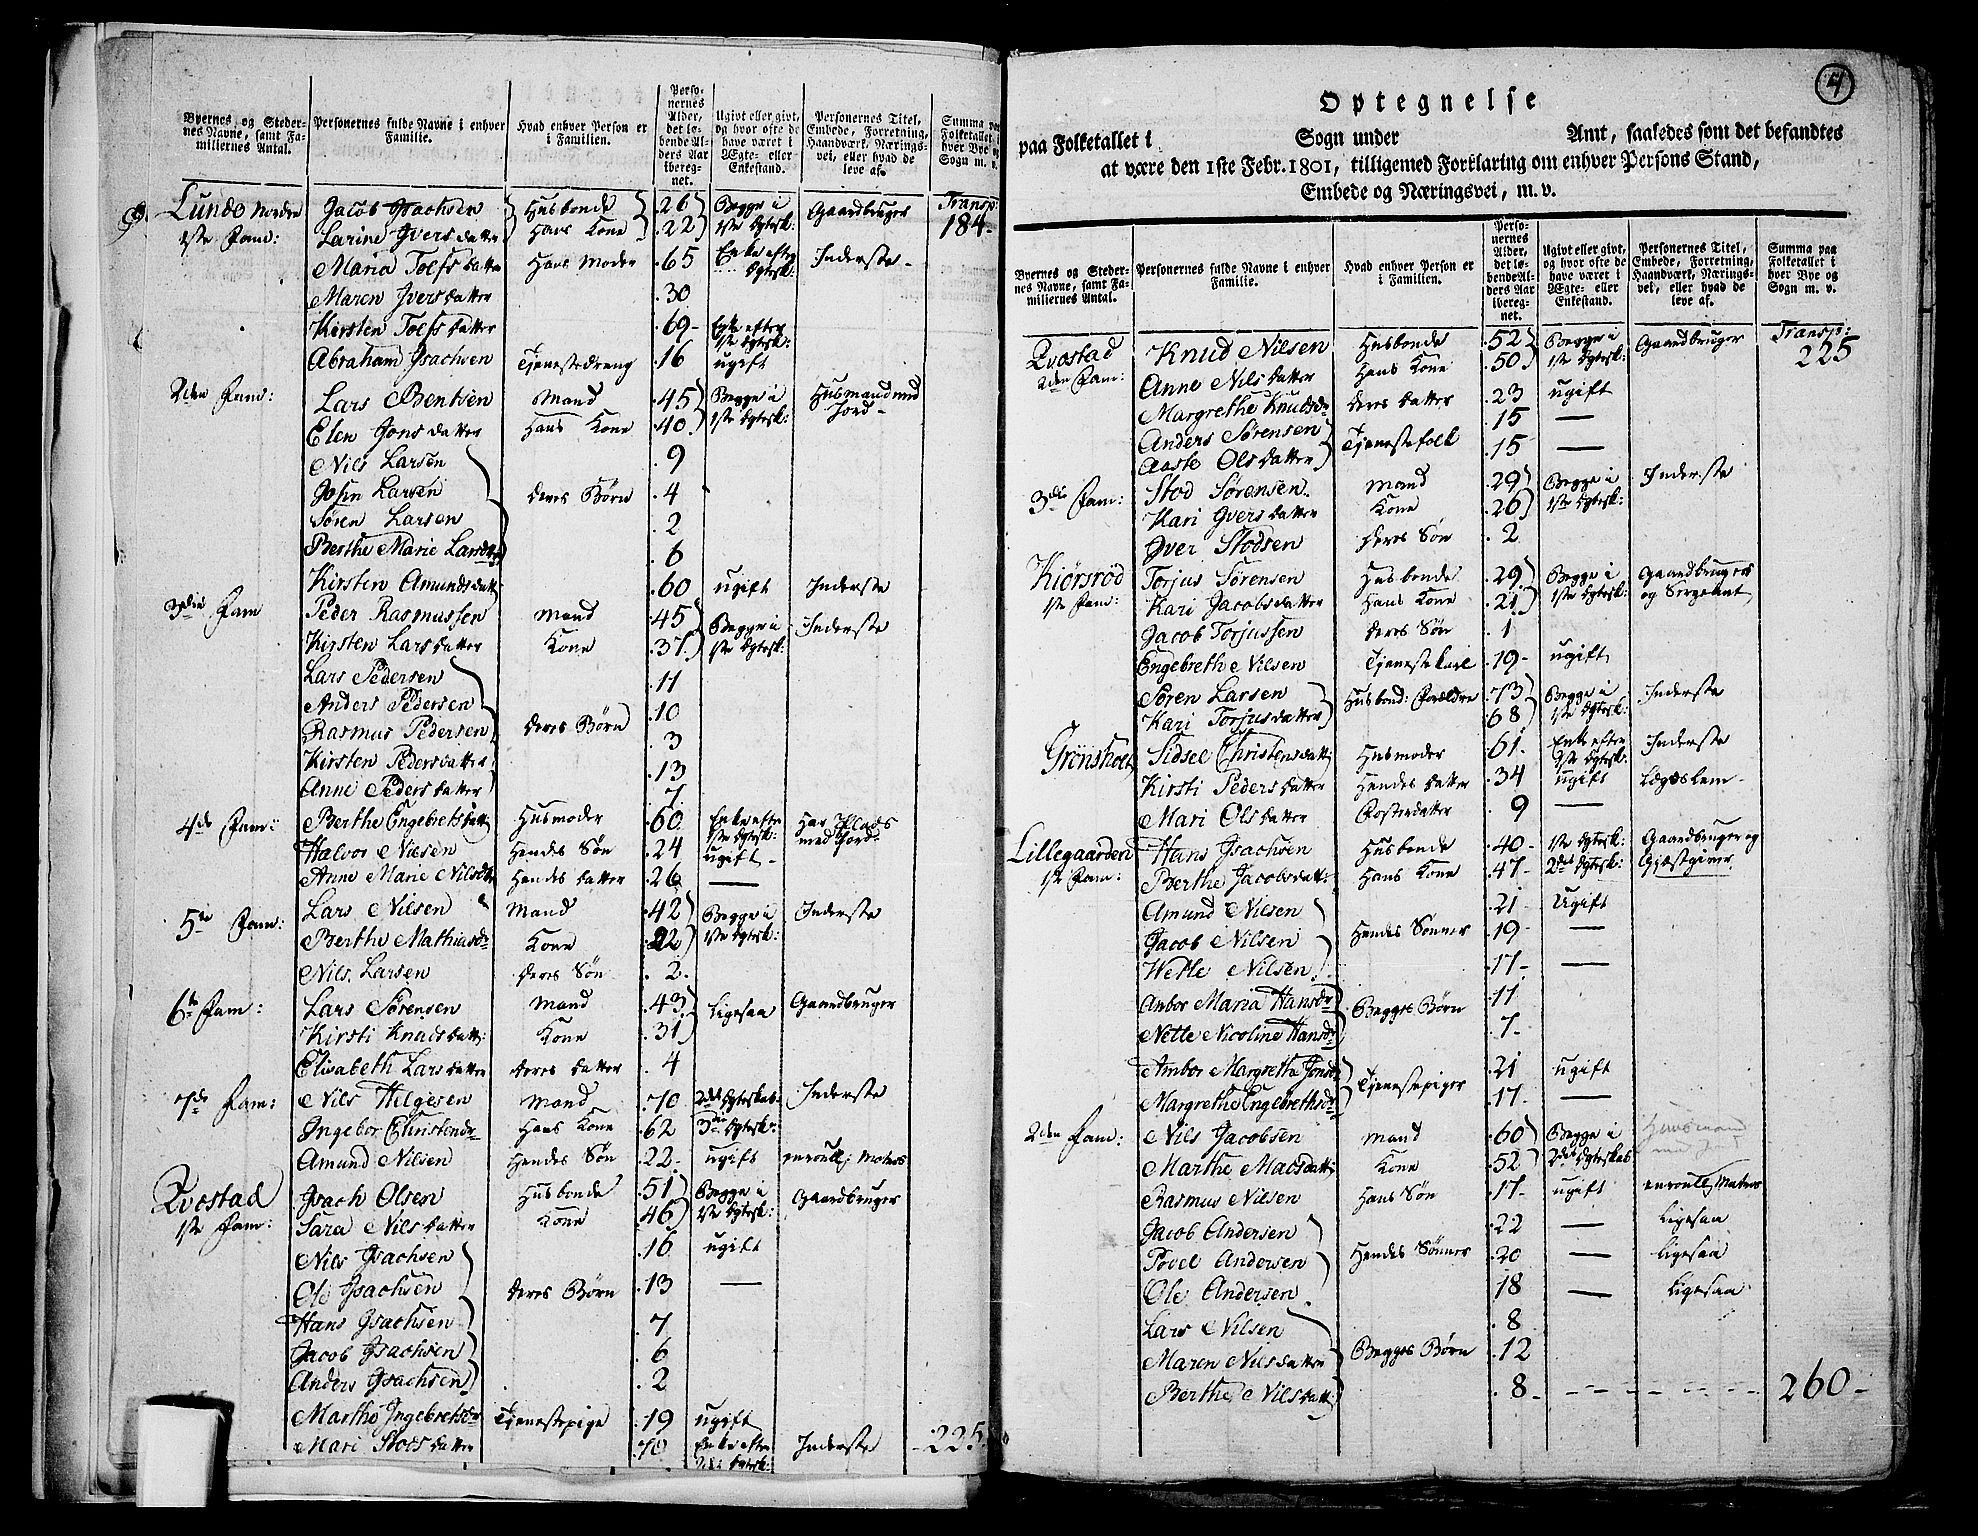 Byernes og Steder-
nes Navne, samt Fa-
miliernes Antal.
Personernes fulde Navne i enhver
Familie.
Hvad enhver Person er
i Familien.
Perso-
nernes
Alder,
det lø-
bende Al-
ders Aar
iberegn-
net.
Ugivt eller givt,
og hvor ofte de
have været i
Ægte- eller
Enkestand.
Personernes Titel,
Embede, Forretning,
Haandværk, Nærings-
vei, eller hvad de
leve af.
Summa paa
Folketallet i
hver Bye og
Sogn m. v.
Lunde Nordre Jacob Isachsen Husbonde 26 Begge i Gaardbruger Transp:
1ste Fam: Larine Iversdatter Hans Kone 22 1ste Ægtesk: 184
Maria Tolfsdatter Hans Moder 65 Enke efter Ægtesk: Inderste
Maren Iversdatter 30
Kirsten Tolfsdatter 69 Enke efter 1ste Ægtesk:
Abraham Isachsen Tjenestedreng 16 ugift
2den Fam: Lars Bentsen Mand 45 Begge i Husmand med
Elen Jonsdatter Hans Kone 40 1ste Ægtesk: Jord
Nils Larsen 9
Larsen deres Børn 4
Søren Larsen 2
Berthe Marie Larsdtr 6
Kirsten Amundsdatt 60 ugift Inderste
3die Fam Peder Rasmussen Mand 45 Begge i Inderste
Kirsten Larsdatter Kone 37 1ste Ægtesk:
Lars Pedersen 11
Anders Pedersen 10
Rasmus Pedersen deres Børn 3
Kirsten Pedersdatter 13
Anne Pedersdatter 7
4de Fam: Berthe Engebretsdatt Husmoder 60 Enke efter 1ste Ægtesk: Har Plads med Jord
Halvor Nilsen Hendes Søn 24 ugift
Anne Marie Nilsdtr Hendes datter 26 —
5te Fam: Lars Nilsen Mand 42 Begge i Inderste
Berthe Mathiasdr Kone 22 1ste Ægtesk:
Nils Larsen deres Søn 2
6te Fam: Lars Sørensen Mand 43 Ligesaa Gaardbruger
Kirsti Knudsdatt: Kone 31
Elisabeth Larsdatter deres datter 4
7de Fam: Nils Helgesen Mand 70 2det Ægteskab: Inderste
Ingebor Christensdr Hans Kone 62 3die Ægtesk:
Amund Nilsen Hendes Søn 22 ugift enroull: Matros
Qvostad Isach Olsen Husbonde 51 Begge i Gaardbruger
1ste Fam: Sara Nilsdatter Kone 46 1ste Ægtesk:
Nils Isachsen 16 ugift
Ole Isachsen deres Børn 13 —
Hans Isachsen 7
Jacob Isachsen 6
Anders Isachsen 2
Marthe Ingebretsdr Tjenestepige 19 ugift
Mari Stodsdatter 70 Enke efter 2det Ægtesk: Inderste 225
4
Optegnelse
paa Folketallet i Sogn under Amt, saaledes som det befandtes
at være den 1ste Febr. 1801, tilligemed Forklaring om enhver Persons Stand,
Embede og Næringsvei, m. v.
Byernes og Steder-
nes Navne, samt Fa-
miliernes Antal.
Personernes fulde Navne i enhver
Familie.
Hvad enhver Person er
i Familien.
Perso-
nernes
Alder,
det lø-
bende Al-
ders Aar
iberegn-
net.
Ugivt eller givt,
og hvor ofte de
have været i
Ægte- eller
Enkestand.
Personernes Titel,
Embede, Forretning,
Haandværk, Nærings-
vei, eller hvad de
leve af.
Summa paa
Folketallet i
hver Bye og
Sogn m. v.
Qvostad Knud Nilsen Husbonde 52 Begge i Gaardbruger Transp:
2den Fam: Anne Nilsdatter Hans Kone 50 1ste Ægtesk: 225
Margrethe Knudsdr deres datter 23 ugift
Anders Sørensen Tjenestefolk 15 —
Aaste Olsdatter 15 —
3die Fam: Stod Sørensen Mand 29 Begge i Inderste
Kari Iversdatter Kone 26 1ste Ægtesk:
Iver Stodsen deres Søn 2
Kiørsrød Torjus Sørensen Husbonde 29 Begge i Gaardbruger
1ste Fam: Kari Jacobsdatter Hans Kone 21 1ste Ægtesk: og Sergeant
Jacob Torjussen deres Søn 1
Engebreth Nilsen Tjenestekarl 19 ugift
Søren Larsen Husbond: Forældre 73 Begge i Inderste
Kari Torjusdatter 68 1ste Ægtesk:
Grønsholt Sidsel Christensdatt Husmoder 61 Enke efter 2det Ægtesk: Inderste
Kirsti Pedersdatter Hendes datter 34 ugift Lægdslem
Mari Olsdatter Fosterdatter 9 —
Lillegaarden Hans Isachsen Husbonde 40 1ste Ægtesk: Gaardbruger og
1ste Fam: Berthe Jacobsdatt: Hans Kone 47 2det Ægtesk: Gjæstgiver
Amund Nilsen 21 Ugift
Jacob Nilsen Hendes Sønner 19 —
Wetle Nilsen 17 —
Anbor Maria Hansdr Begges Børn 11
Nelle Nicoline Hansdr 7
Ambor Margretha Jonsdr Tjenestepiger 21 ugift
Margrethe Engebrethsdr 17 —
2den Fam: Nils Jacobsen Mand 60 Begge i Huusmand
Marthe Madsdatt Kone 52 2det Ægteskab med Jord
Rasmus Nilsen Hans Søn 17 ugift enroull Matros
Jacob Andersen 22 — Ligesaa
Povel Andersen Hendes Sønner 20 — Ligesaa
Ole Andersen 18 — Ligesaa
Lars Nilsen 8
Maren Nilsdatter Begges Børn 12
Berthe Nilsdatt 8 260